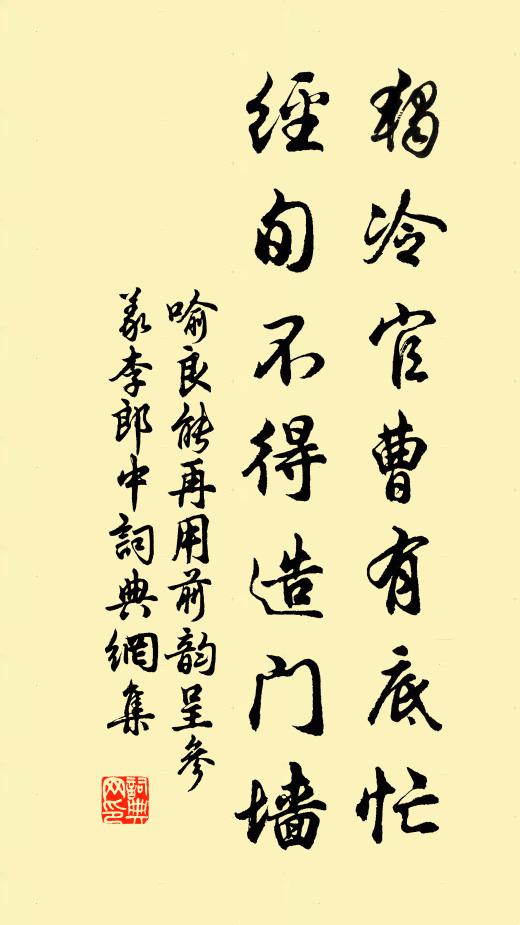 獨冷官曹有底忙
經旬不得造门墙
喻良能再用前韵呈參
義李郎中詞典網集
詞典
网印